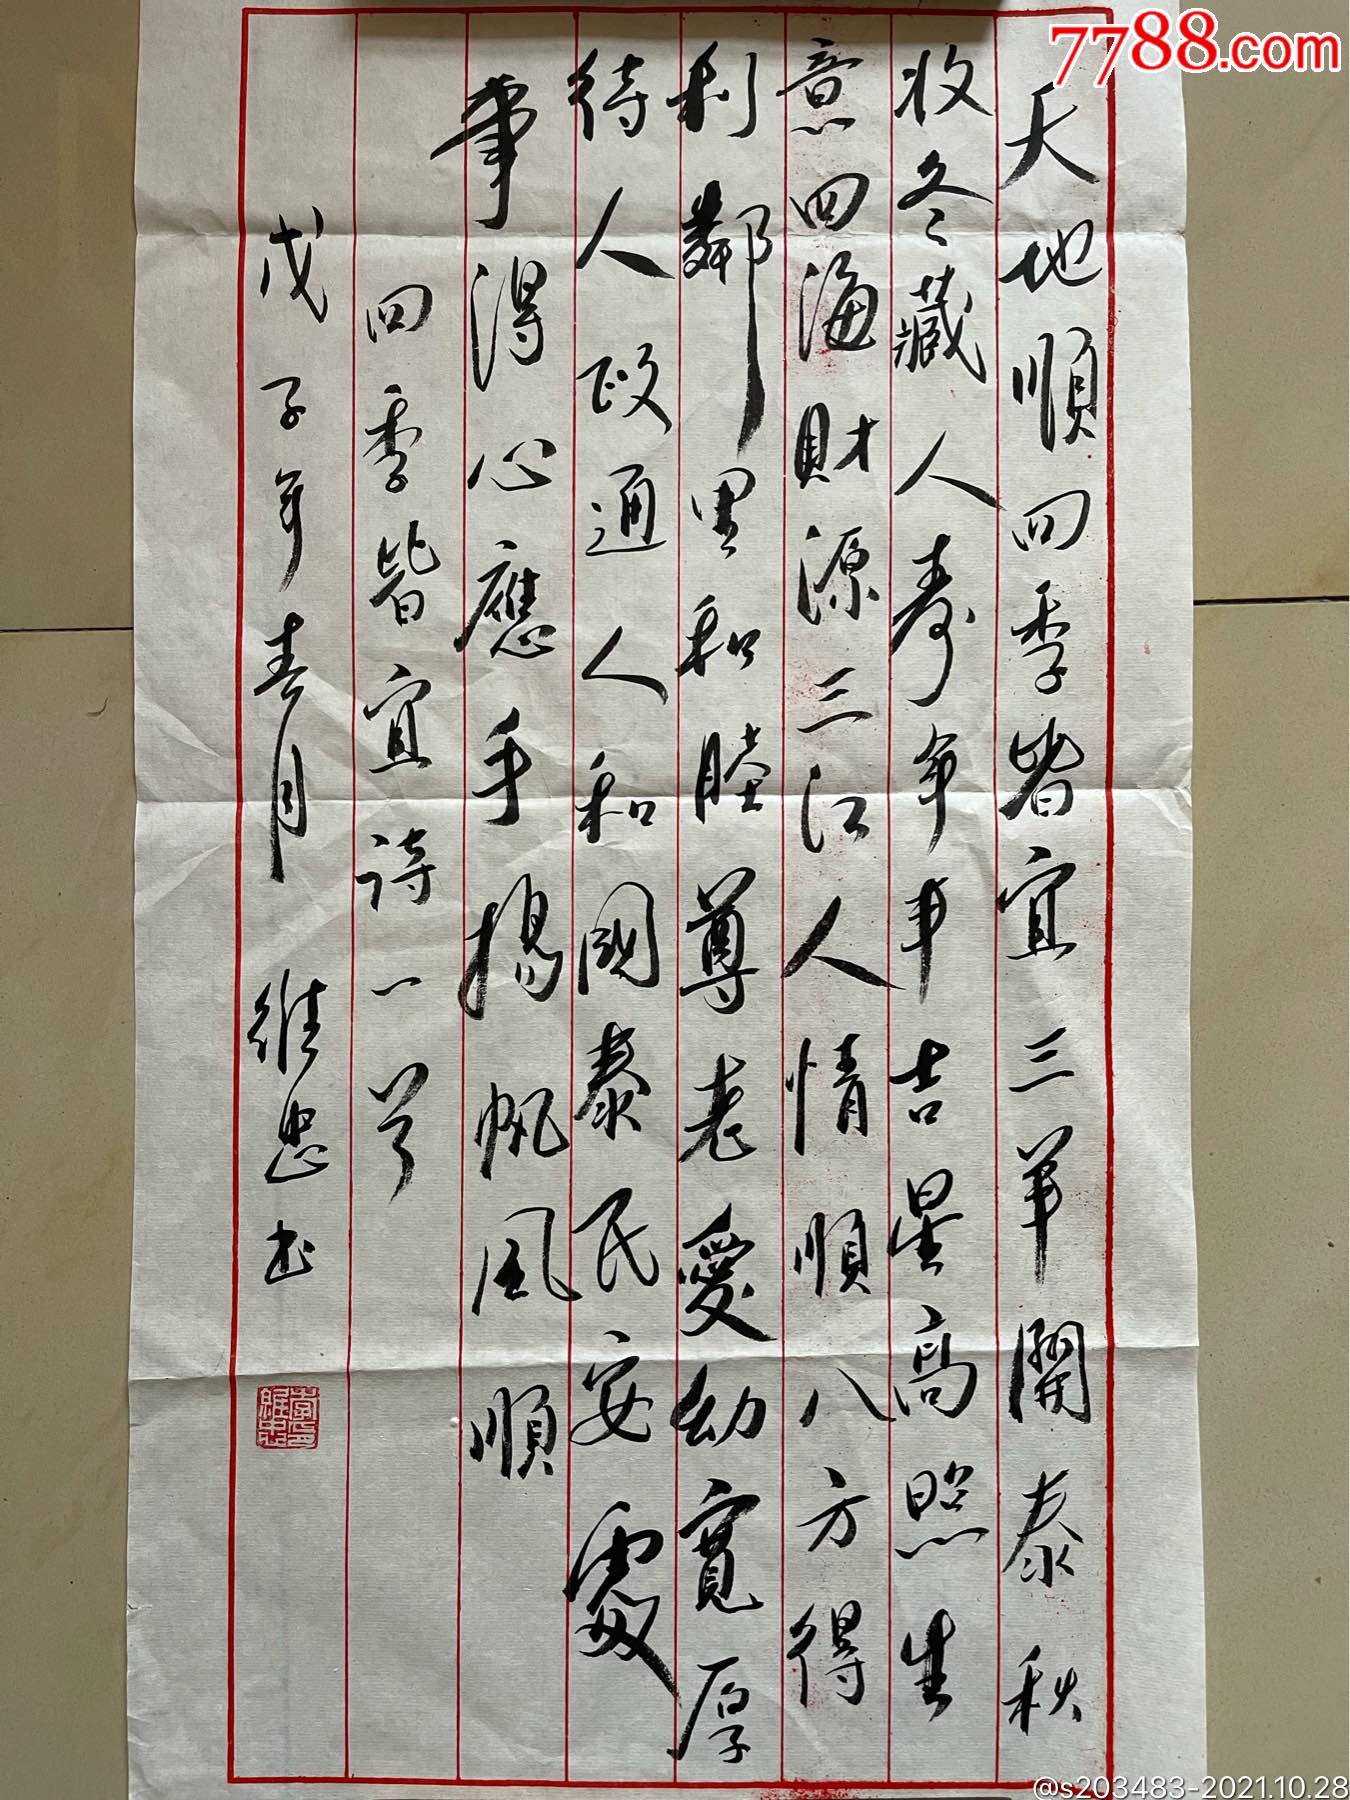 天地順四季皆宜三羊開泰秋
收冬藏人壽年丰吉星高照生
意四海財源三江人情順八方得
利鄰里和睦尊老愛幼寬厚
待人政通人和國泰民安處
事得心應手揚帆風順
四季皆宜詩一首
戊子年春月 維忠书
7788.com
@s203483-2021.10.28